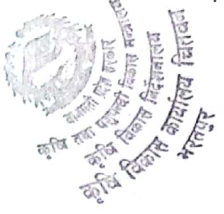 बागमती प्रदेश सरकार
कृषि तथा पशुपन्छी विकास मन्त्रालय
कृषि विकास निर्देशनालय
कृषि विकास कार्यालय चितवन
भरतपुर